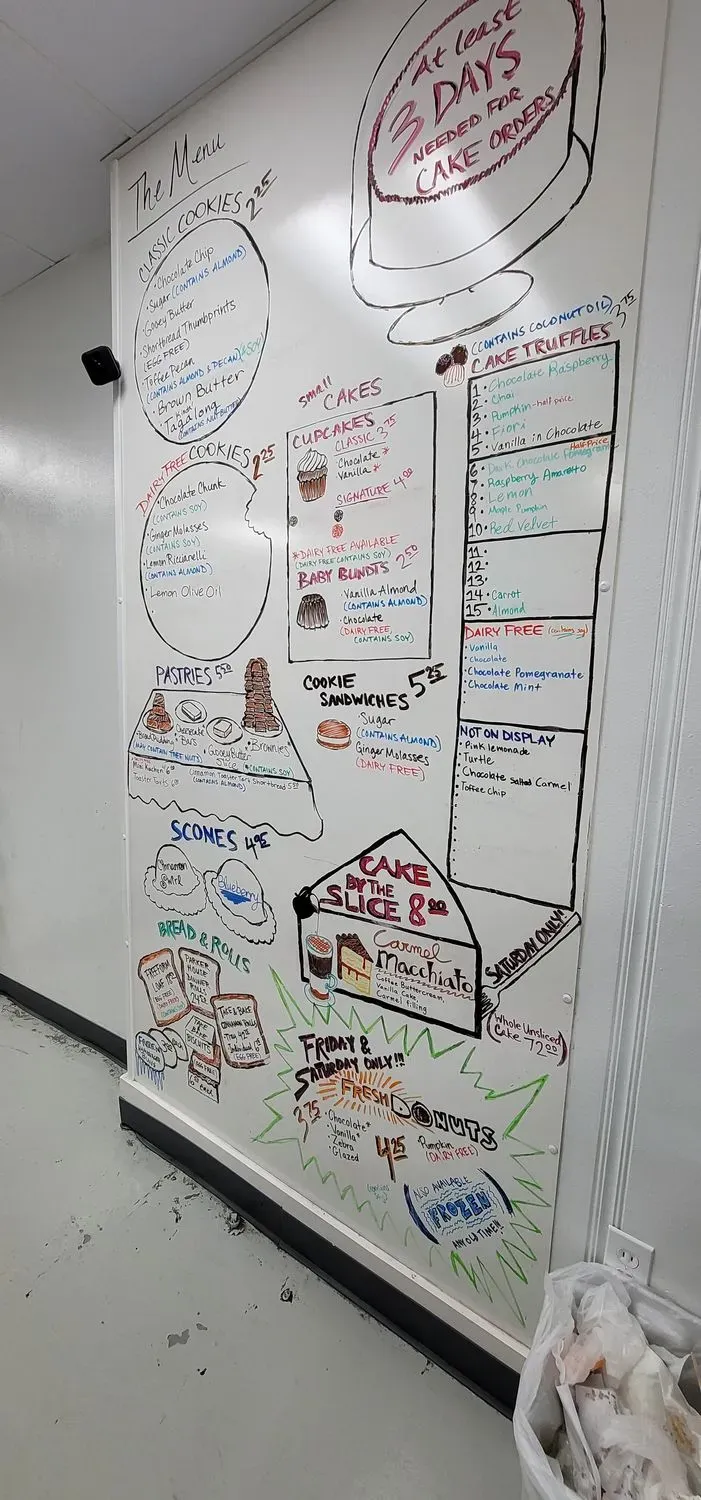 At least
3 DAYS
NEEDED FOR
CAKE ORDERS
The Menu
CLASSIC COOKIES 2.25
• Chocolate Chip
• Sugar (CONTAINS ALMOND)
• Gooey Butter
• Shortbread Thumbprints
(EGG FREE)
• Toffee Pecan
(CONTAINS ALMOND & PECAN) & SOY
• Brown Butter
• Kinda Tagalong
(CONTAINS NUT BUTTER)
DAIRY FREE COOKIES 2.25
• Chocolate Chunk
(CONTAINS SOY)
• Ginger Molasses
(CONTAINS SOY)
• Lemon Ricciarelli
(CONTAINS ALMOND)
• Lemon Olive Oil
PASTRIES 5.50
• Bread Pudding
• Cheesecake Bars
• Gooey Butter Slice
• Brownies
(MAY CONTAIN TREE NUTS)
*CONTAINS SOY
Toaster Tarts 6.00
Cinnamon Toaster Tart Shortbread 5.50
(CONTAINS ALMOND)
SCONES 4.95
Cinnamon Swirl
Blueberry
BREAD & ROLLS
FREEFORM LOAF
(EGG FREE)
DAIRY FREE
PARKER HOUSE DINNER ROLLS
TAKE & BAKE
CINNAMON ROLLS
TRAY 42.00
(EGG FREE)
TAKE & BAKE BISCUITS
(EGG FREE)
small CAKES
CUPCAKES
CLASSIC 3.75
• Chocolate *
• Vanilla *
SIGNATURE 4.00
* DAIRY FREE AVAILABLE
(DAIRY FREE CONTAINS SOY)
BABY BUNDTS 2.50
• Vanilla Almond
(CONTAINS ALMOND)
• Chocolate
(DAIRY FREE, CONTAINS SOY)
COOKIE SANDWICHES 5.25
• Sugar
(CONTAINS ALMOND)
Ginger Molasses
(DAIRY FREE)
(CONTAINS COCONUT OIL) 3.75
CAKE TRUFFLES
1 • Chocolate Raspberry
2 • Chai
3 • Pumpkin - half price
4 • Fiori
5 • Vanilla in Chocolate
Half Price
6 • Dark Chocolate Pomegranate
7 • Raspberry Amaretto
8 • Lemon
9 • Maple Pumpkin
10 • Red Velvet
11 •
12 •
13 •
14 • Carrot
15 • Almond
DAIRY FREE (contains soy)
• Vanilla
• Chocolate
• Chocolate Pomegranate
• Chocolate Mint
NOT ON DISPLAY
• Pink lemonade
• Turtle
• Chocolate Salted Carmel
• Toffee Chip
CAKE
BY THE
SLICE 8.00
Carmel
Macchiato
Coffee Buttercream,
Vanilla Cake,
Carmel filling
SATURDAY ONLY!
(Whole Unsliced
Cake 72.00)
FRIDAY &
SATURDAY ONLY!!!
FRESH DONUTS
3.75
• Chocolate*
• Vanilla*
• Zebra
• Glazed
4.25
Pumpkin
(DAIRY FREE)
ALSO AVAILABLE
FROZEN
ANY OLD TIME!!